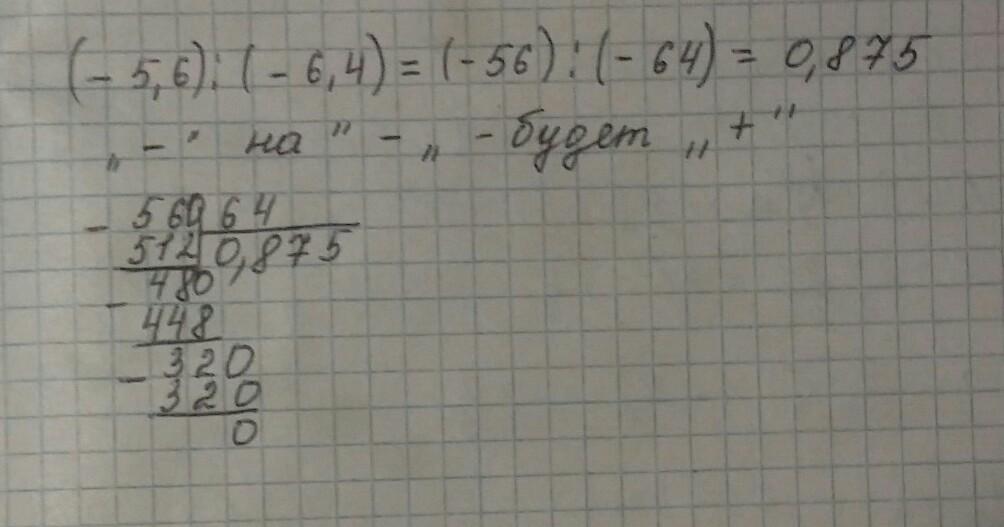 (- 5,6) : (- 6,4) = (-56) : (- 64) = 0,875
„ - " на " - „ - будет „ + "
- 560 64
512 0,875
- 480
448
- 320
320
0